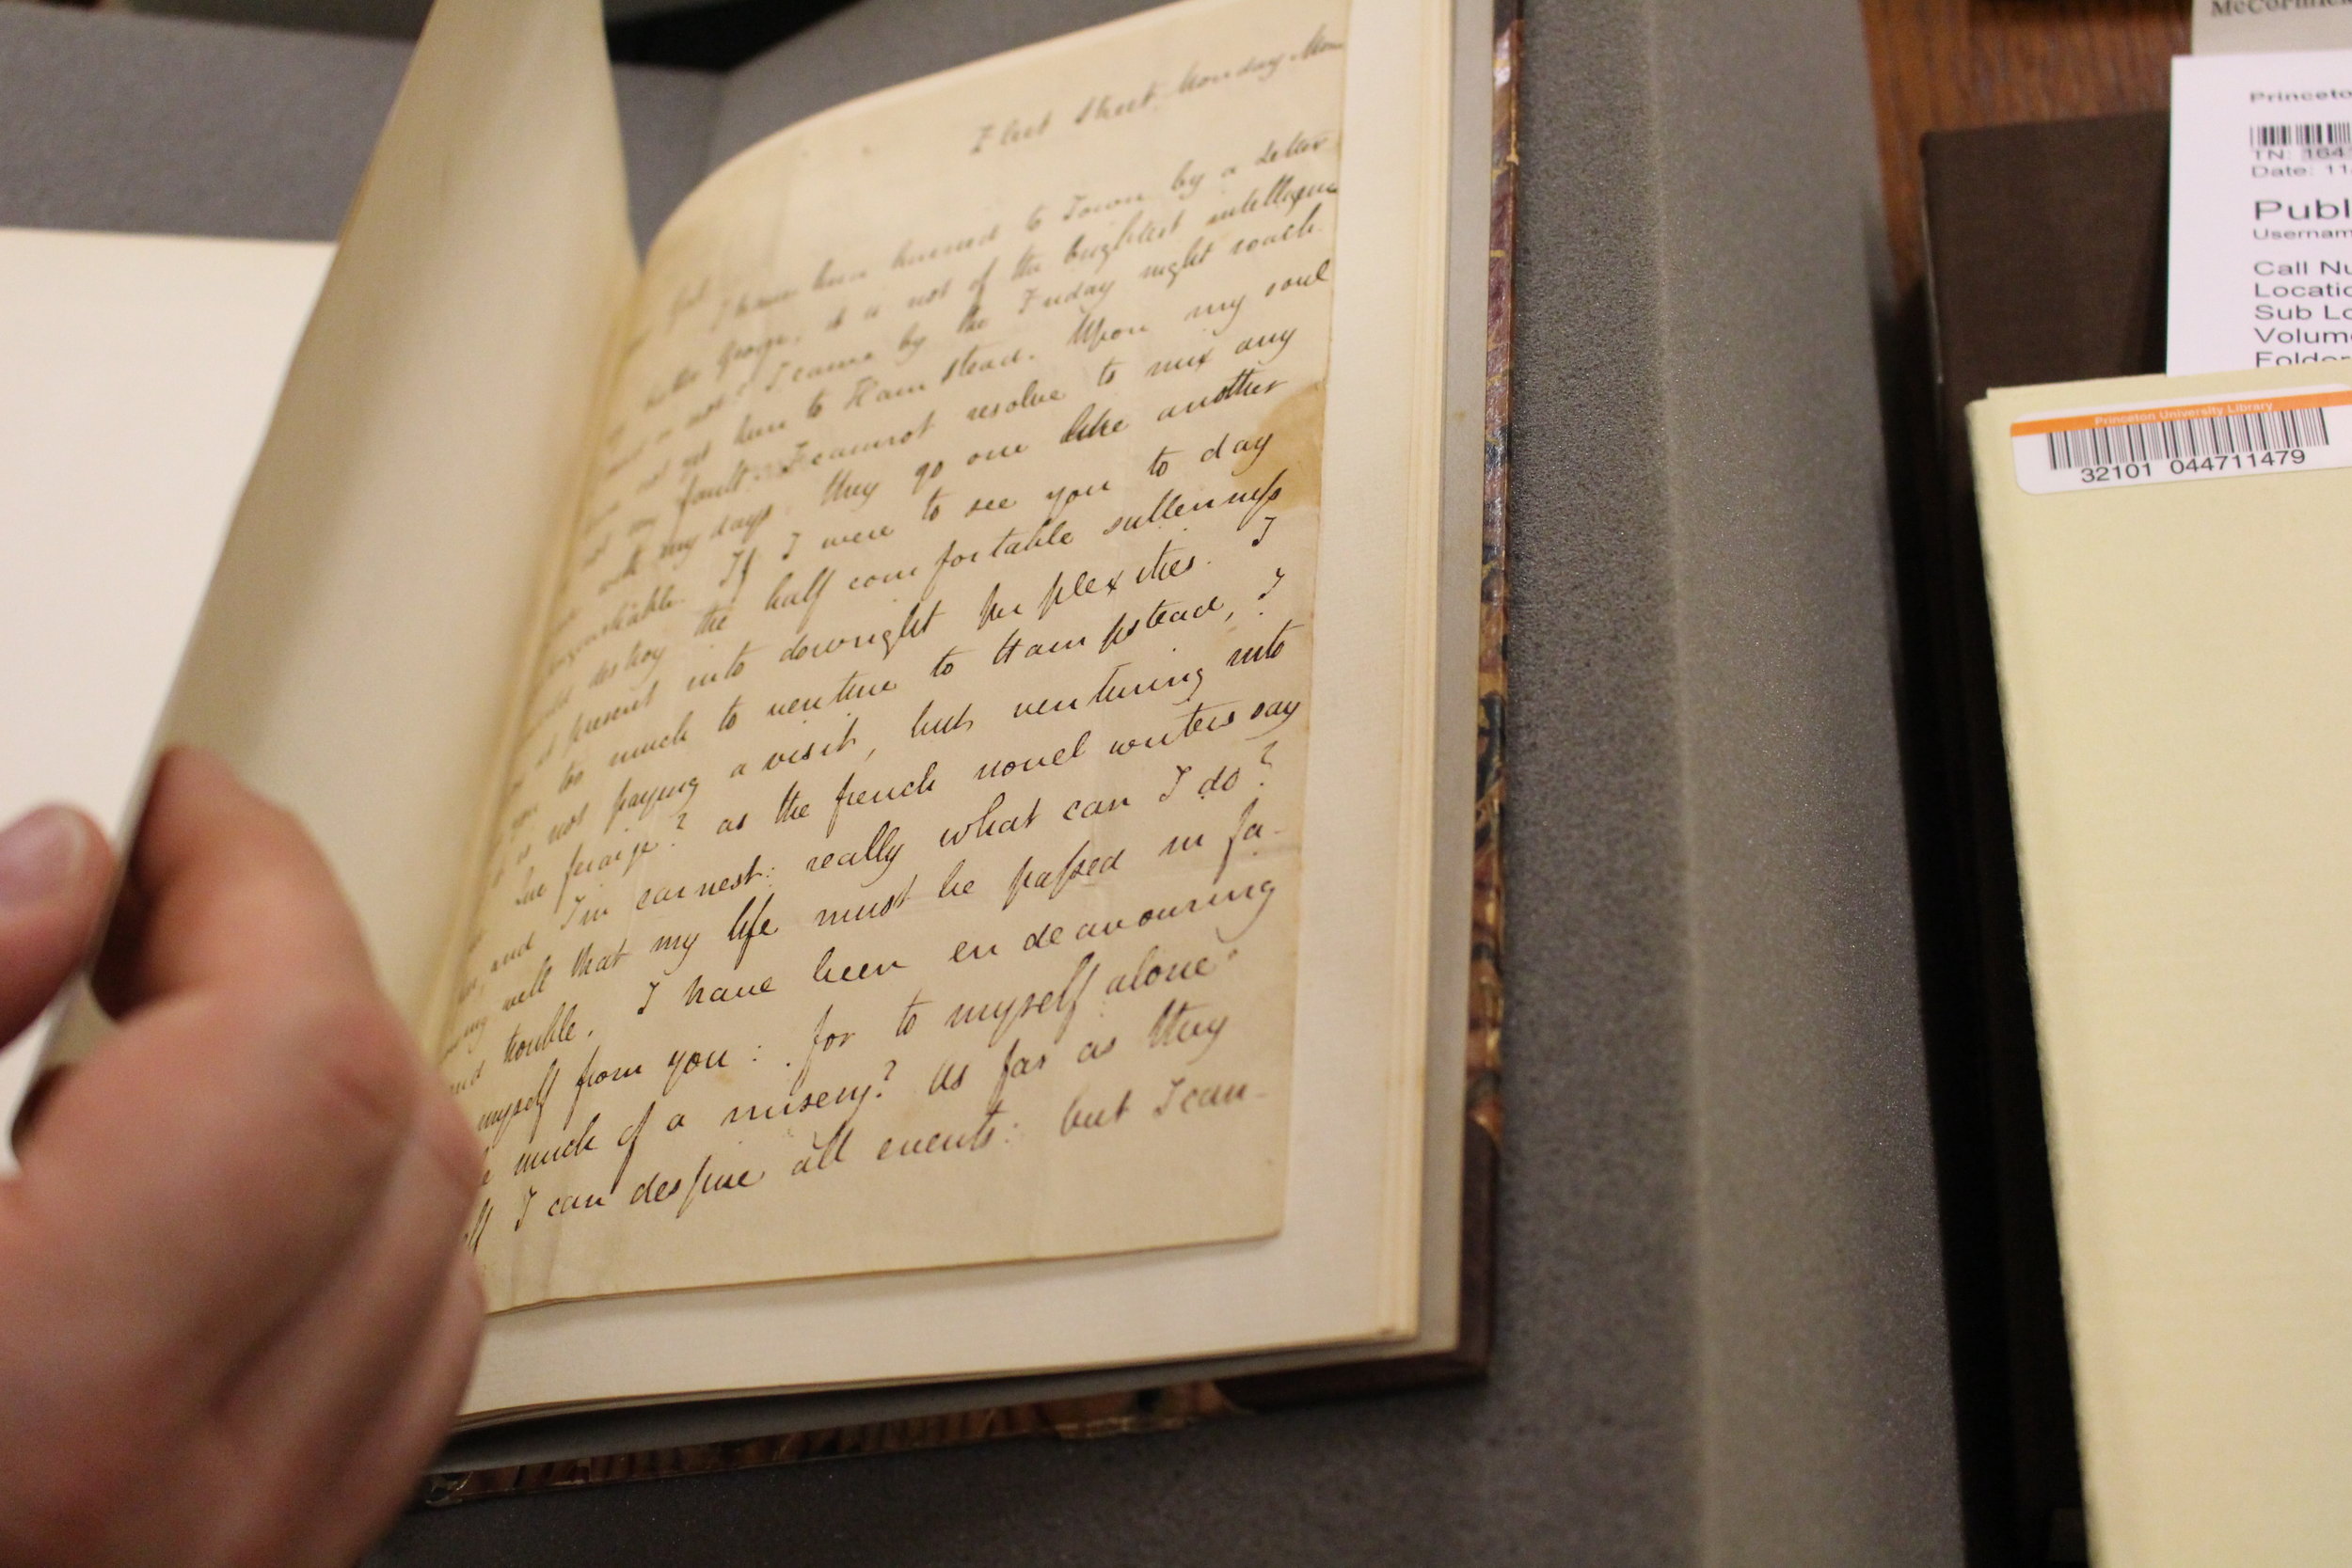 Fleet Street, Monday Mor
Girl
I have been hurried to Town by a Letter
brother George; it is not of the brightest intelligen
or not? I came by the Friday night coach
not yet been to Ham stead. Upon my soul
not my fault. I cannot resolve to mix any
with my days: they go one like another
If I were to see you to day
destroy the half comfortable sullenness
at present into downright perplexities. I
you too much to venture to Hampstead, I
it is not paying a visit, but venturing into
fire. Que feraije? as the french novel writers say
and I'm earnest: really what can I do?
well that my life must be passed in fa-
and trouble, I have been endeavouring
myself from you: for to myself alone
much of a misery? As far as they
I can despise all events: but I can-
McCormick
Princeto
TN: 164
Date: 11
Publ
Usernam
Call Nu
Locatio
Sub Lo
Volum
Folder
Princeton University Library
32101 044711479